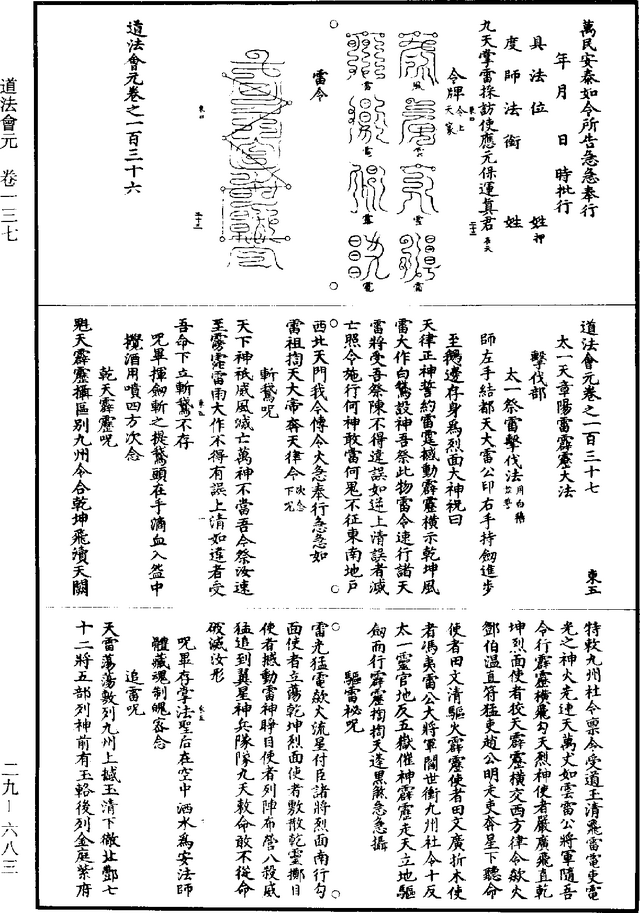 萬民安泰如令所告急急奉行
年月日時批行
具法位姓押
度師法銜姓
九天掌雷採訪使應元保運真君
令牌
風
雷
雷令
道法會元卷之一百三十六
道法會元卷之一百三十七
太一天章陽雷霹靂大法
擊伐部
太一祭雷擊伐法
師左手結都天大雷公印右手持劍進步
至鵝邊存身為烈面大神祝曰
天律正神誓約雷霆撼動霹靂橫示乾坤風
雷大作白鵞設神吾祭此物雷令速行諸天
雷將受吾祭陳不得違誤如逆上清誤者滅
亡照令施行何神敢當何鬼不征東南地戶
西北天門我令傳令火急奉行急急如
雷祖掏天大帝奔天律令次念下咒
斬鵞咒
天下神祇威風滅亡萬神不當吾令祭汝速
至雷雨大作不得有誤上清如違者受
吾命下立斬鵞不存
咒畢揮劍斬之提鵞頭在手滴血入盆中
攪酒用噴四方次念
乾天霹靂咒
魁天霹靂攝區別九州令合乾坤飛瀆天關
東五
特敕九州社令稟令受道玉清飛雷電吏電
光之神火光連天萬丈如雲雷公將軍隨吾
令行霹靂橫飛勾天烈神使者嚴廣飛直乾
坤烈面使者按天霹靂橫交西方律令欻火
鄧伯溫直符猛吏趙公明走吏奔星下聽命
使者田文清驅火霹靂使者田文廣折木使
者馮夷雷公大將軍闔世衝九州社令十反
太一靈官地反五嶽催神霹靂走天立地驅
劍而行霹靂掏掏天蓬黑煞急急攝
驅雷秘咒
雷光猛電欻火流星付臣諸將烈面南行勾
面使者立蕩乾坤烈面使者敷散乾靈擲目
使者撼動雷神睜目使者列陣布營八殺威
猛追到翼星神兵隊隊九天敕命敢不從命
破滅汝形
咒畢存掌法聖后在空中洒水為安法師
體藏魂制魄密念
追雷咒
天雷蕩蕩數列九州上撼玉清下徹北酆七
十二將五部列神前有玉輅後列金庭紫府
道法會元 卷一三七
二九—六八三